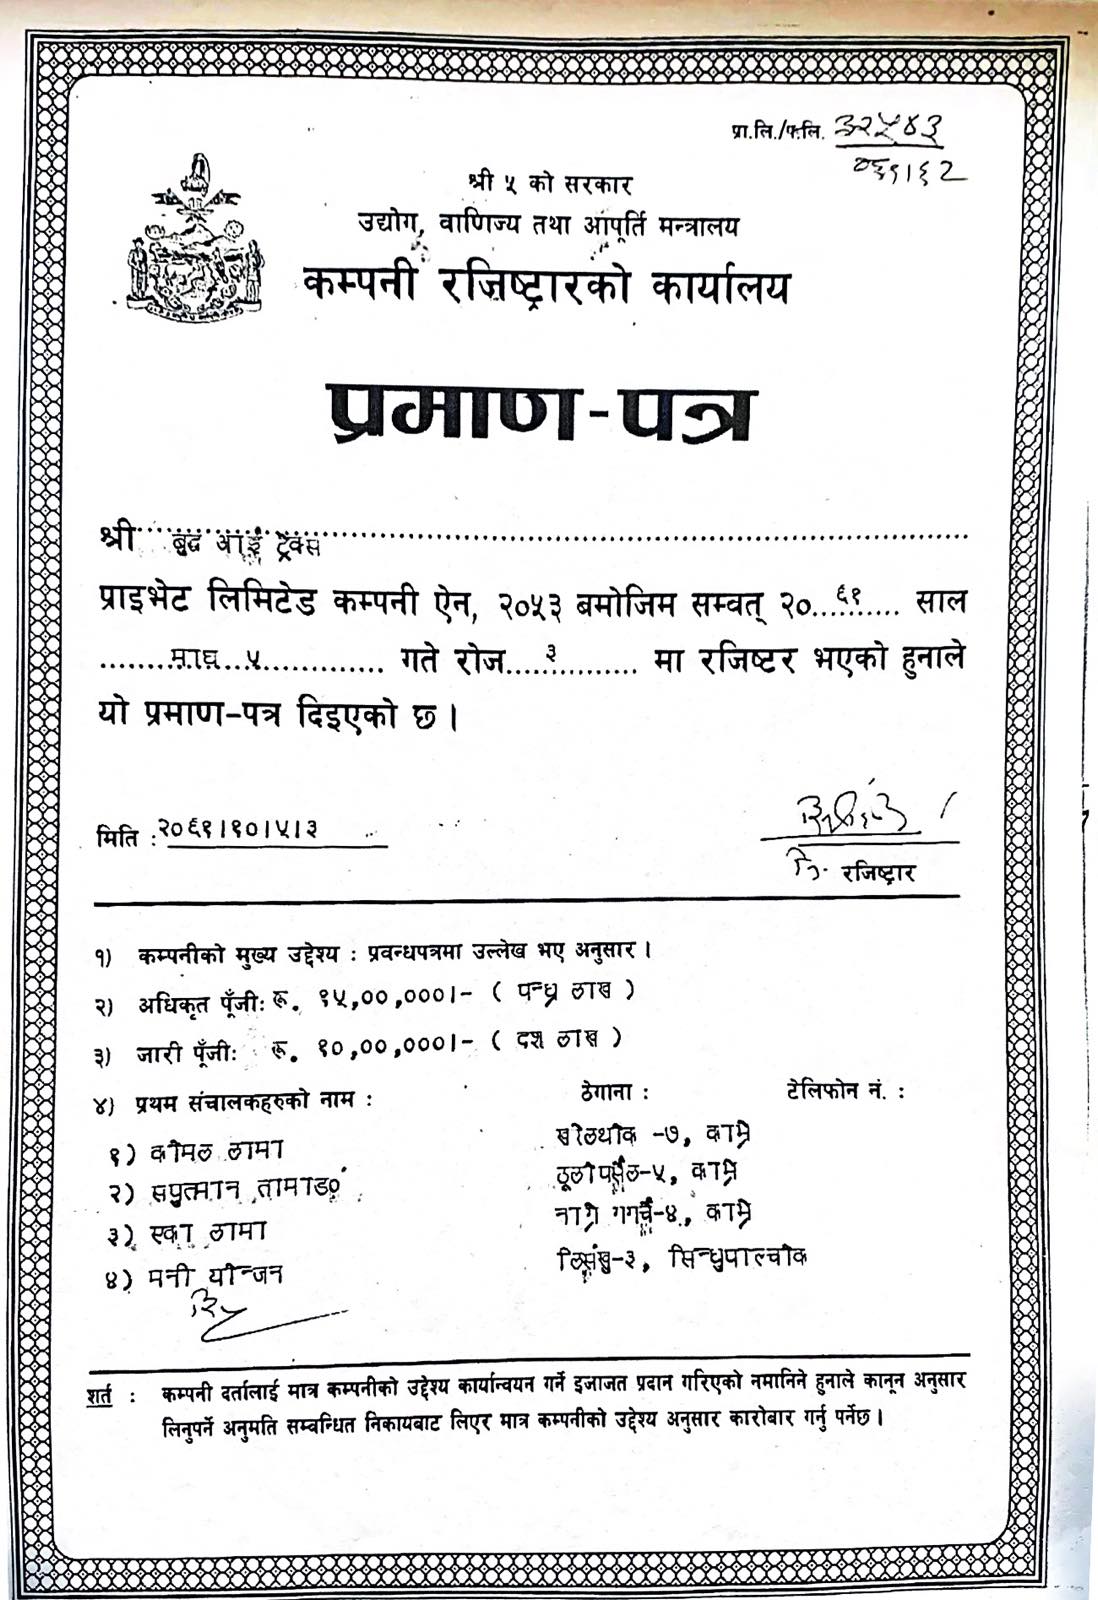 प्रा.लि./फ.लि. ३२५४३
०६१।६२
श्री ५ को सरकार
उद्योग, वाणिज्य तथा आपूर्ति मन्त्रालय
कम्पनी रजिष्ट्रारको कार्यालय
प्रमाण-पत्र
श्री बुद्ध आई ट्रेक्स
प्राइभेट लिमिटेड कम्पनी ऐन, २०५३ बमोजिम सम्वत् २०...६१... साल
माघ ५ गते रोज ३ मा रजिष्टर भएको हुनाले
यो प्रमाण-पत्र दिइएको छ।
मिति : २०६१।१०।५।३
नि. रजिष्ट्रार
१) कम्पनीको मुख्य उद्देश्य : प्रवन्धपत्रमा उल्लेख भए अनुसार।
२) अधिकृत पूँजी: रू. १५,००,०००।- ( पन्ध्र लाख )
३) जारी पूँजी: रू. १०,००,०००।- ( दश लाख )
४) प्रथम संचालकहरुको नाम : ठेगाना : टेलिफोन नं. :
१) कोमल लामा खोलथोक -७, काभ्रे
२) सपुत्मान तामाङ ठूलोपर्सेल-५, काभ्रे
३) एका लामा नाग्रे गगर्चे-४, काभ्रे
४) मनी योन्जन लिसंखु-३, सिन्धुपाल्चोक
शर्त : कम्पनी दर्तालाई मात्र कम्पनीको उद्देश्य कार्यान्वयन गर्ने इजाजत प्रदान गरिएको नमानिने हुनाले कानून अनुसार
लिनुपर्ने अनुमति सम्बन्धित निकायबाट लिएर मात्र कम्पनीको उद्देश्य अनुसार कारोबार गर्नु पर्नेछ।